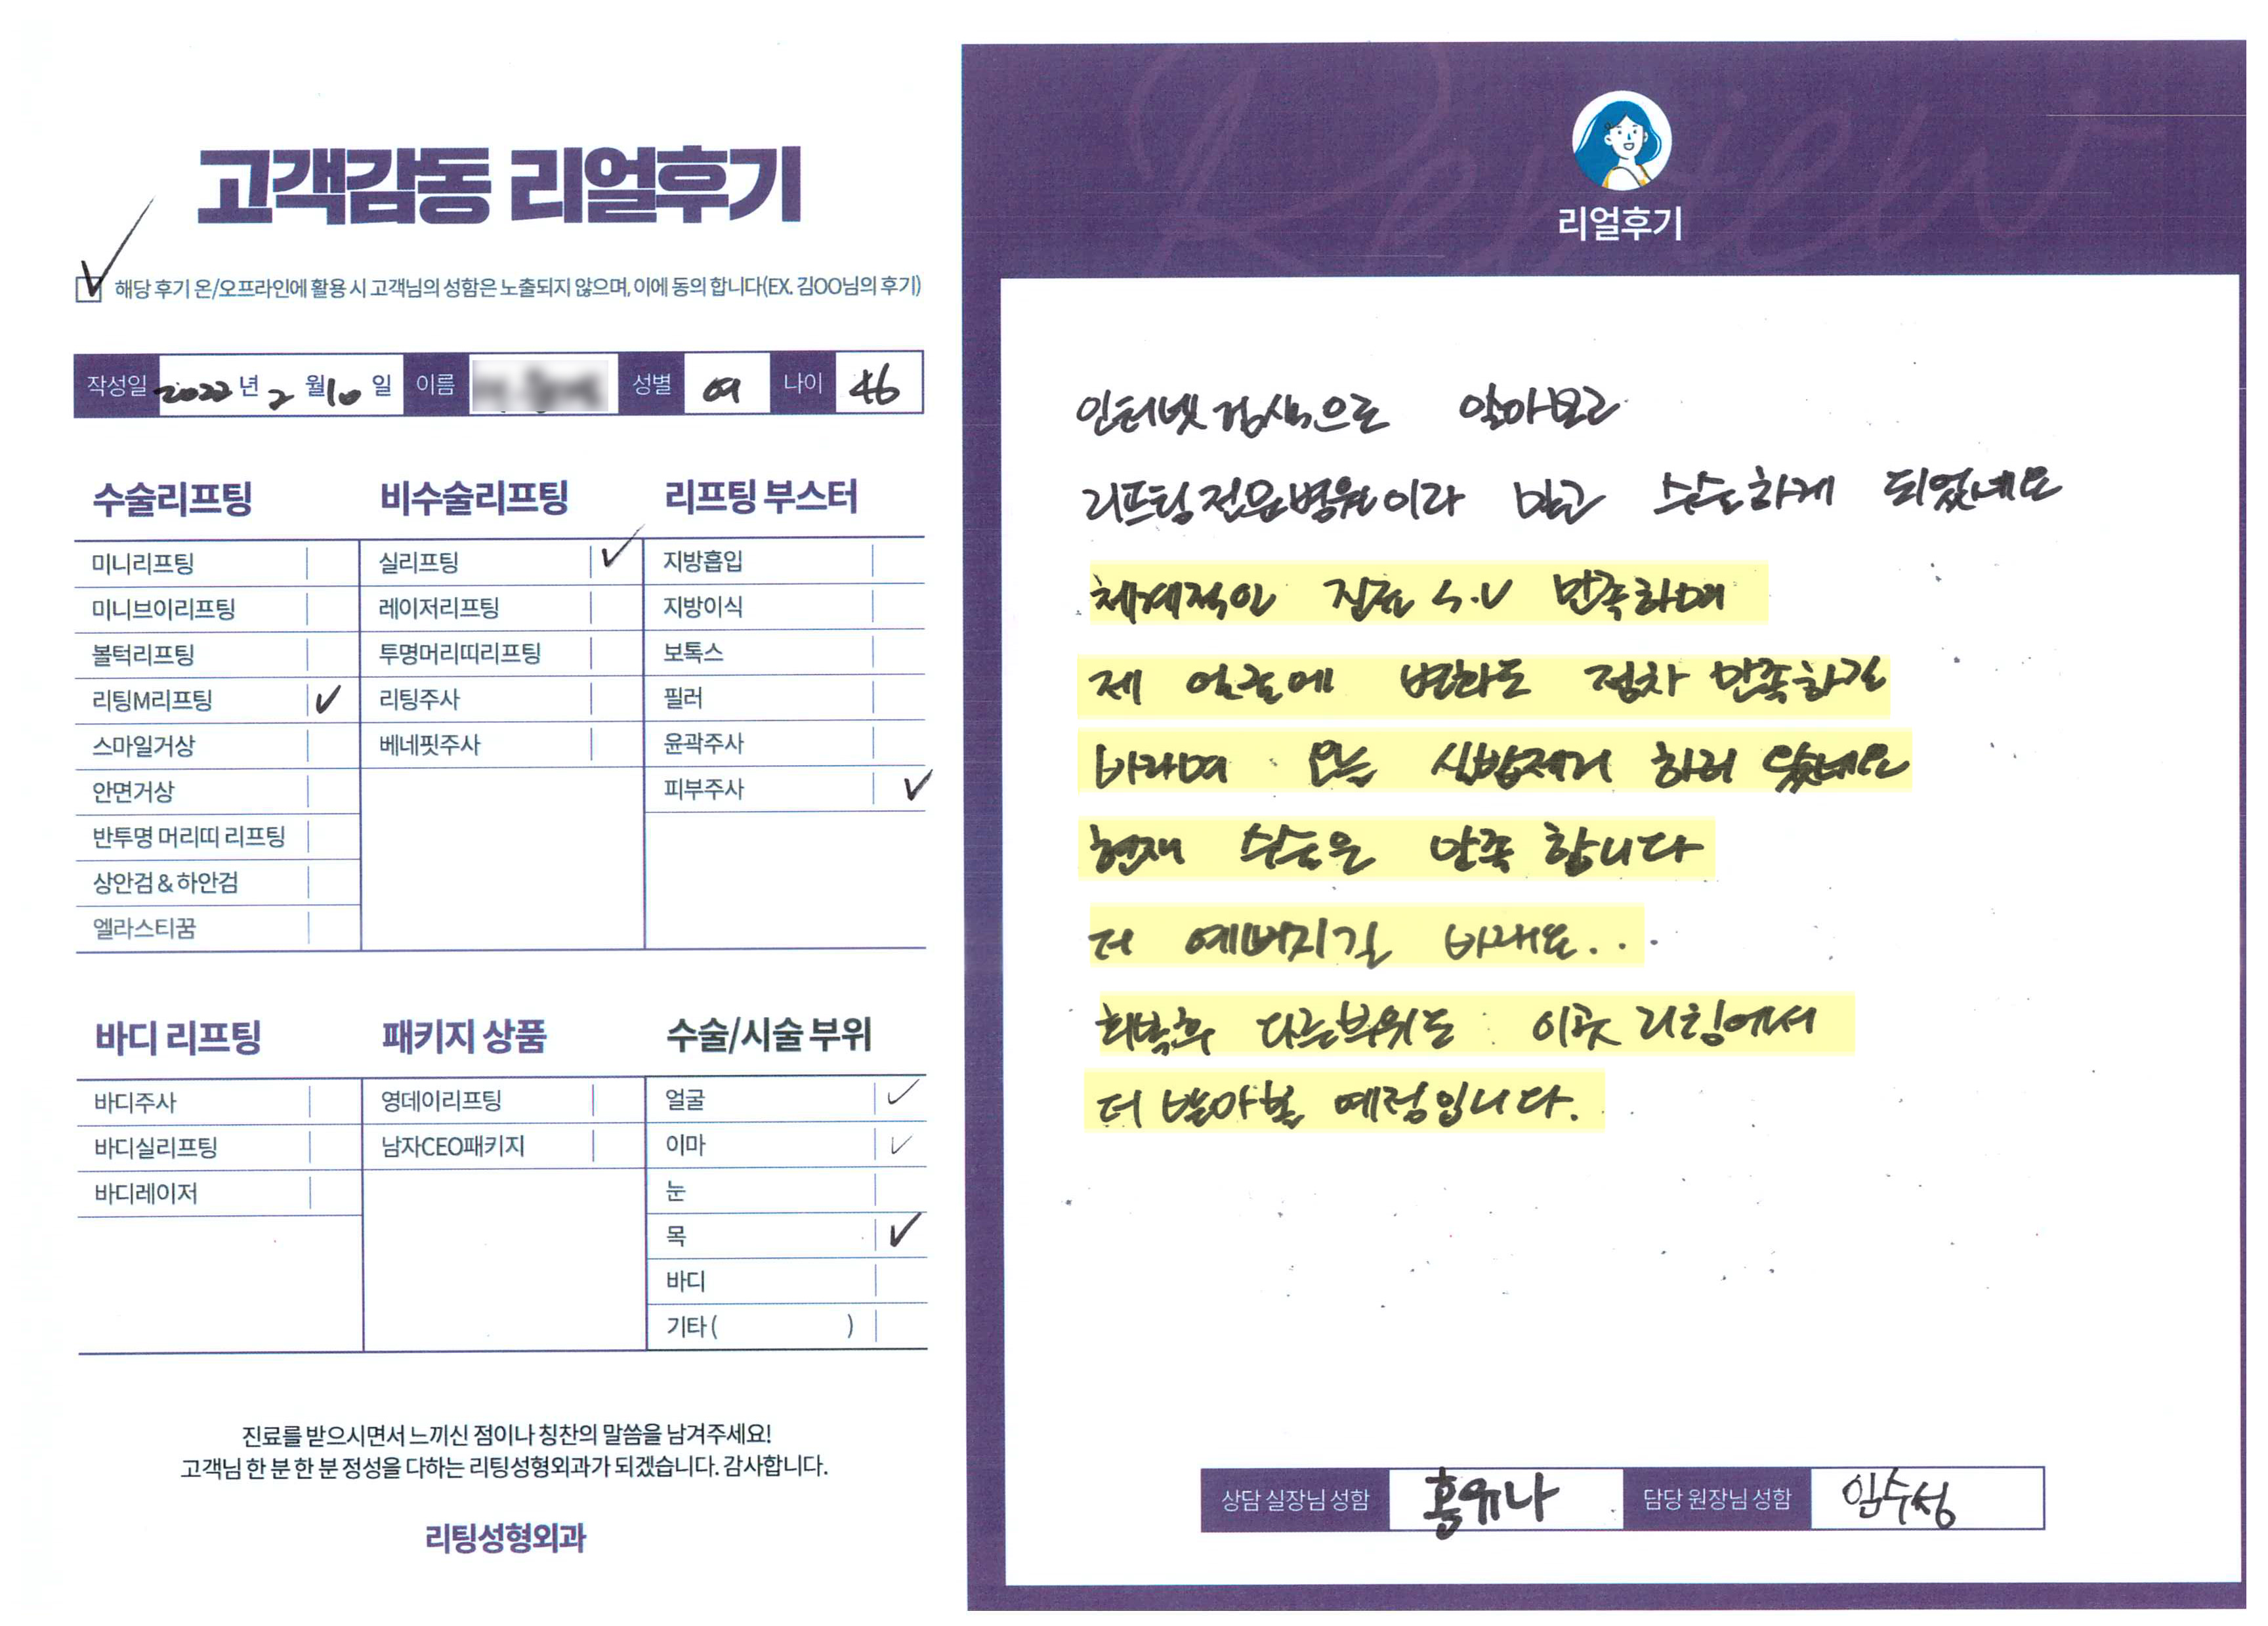 고객감동 리얼후기
해당 후기 온/오프라인에 활용 시 고객님의 성함은 노출되지 않으며, 이에 동의 합니다(EX. 김OO님의 후기)
작성일 2022년 2월 10일 이름 성별 여 나이 46
수술리프팅
미니리프팅
미니브이리프팅
볼턱리프팅
리팅M리프팅 ✓
스마일거상
안면거상
반투명 머리띠 리프팅
상안검&하안검
엘라스티꿈
비수술리프팅
실리프팅 ✓
레이저리프팅
투명머리띠리프팅
리팅주사
베네핏주사
리프팅 부스터
지방흡입
지방이식
보톡스
필러
윤곽주사
피부주사 ✓
바디 리프팅
바디주사
바디실리프팅
바디레이저
패키지 상품
영데이리프팅
남자CEO패키지
수술/시술 부위
얼굴 ✓
이마 ✓
눈
목 ✓
바디
기타( )
진료를 받으시면서 느끼신 점이나 칭찬의 말씀을 남겨주세요!
고객님 한 분 한 분 정성을 다하는 리팅성형외과가 되겠습니다. 감사합니다.
리팅성형외과
Review
리얼후기
인터넷 검색으로 알아보고
리프팅 전문병원이라 믿고 수술하게 되었네요
체계적인 진료 S.V 만족하며
제 얼굴에 변화도 점차 만족하길
바라며 오늘 실밥제거 하러 왔네요
현재 수술은 만족 합니다
더 예뻐지길 바래요..
회복후 다른부위도 이곳 리팅에서
더 받아볼 예정입니다.
상담 실장님 성함 홍유나 담당 원장님 성함 임수성